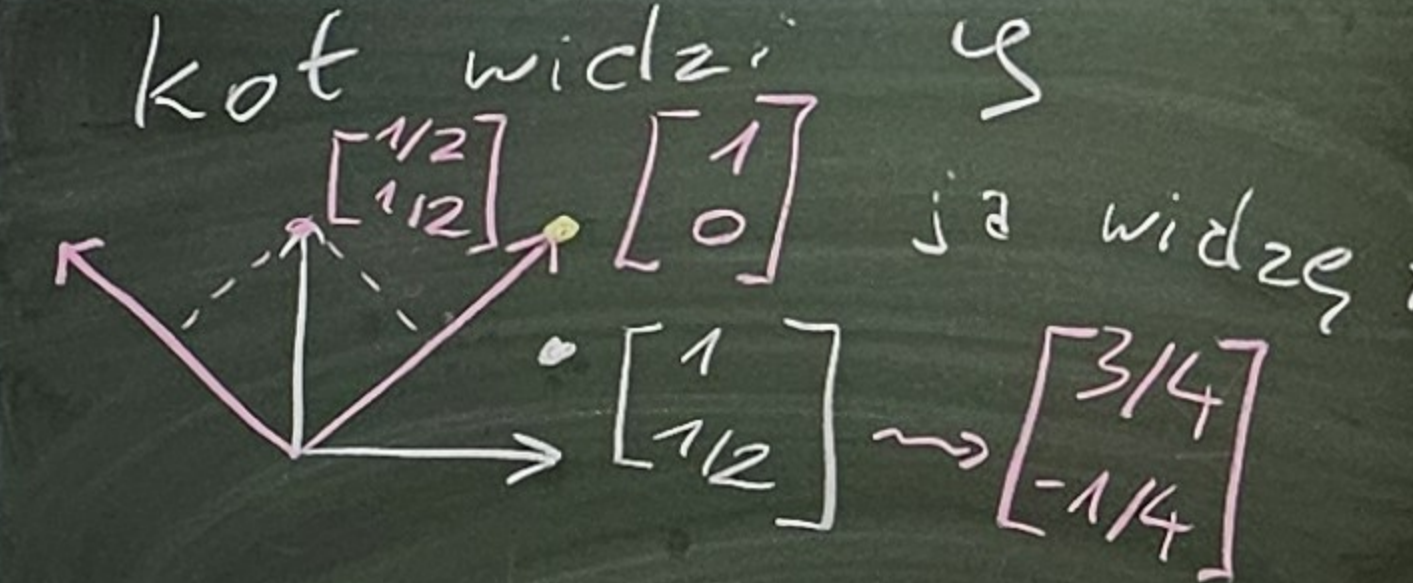 kot widzi φ
[1/2 1/2] [1 0] ja widzę
[1 1/2] ⇝ [3/4 -1/4]